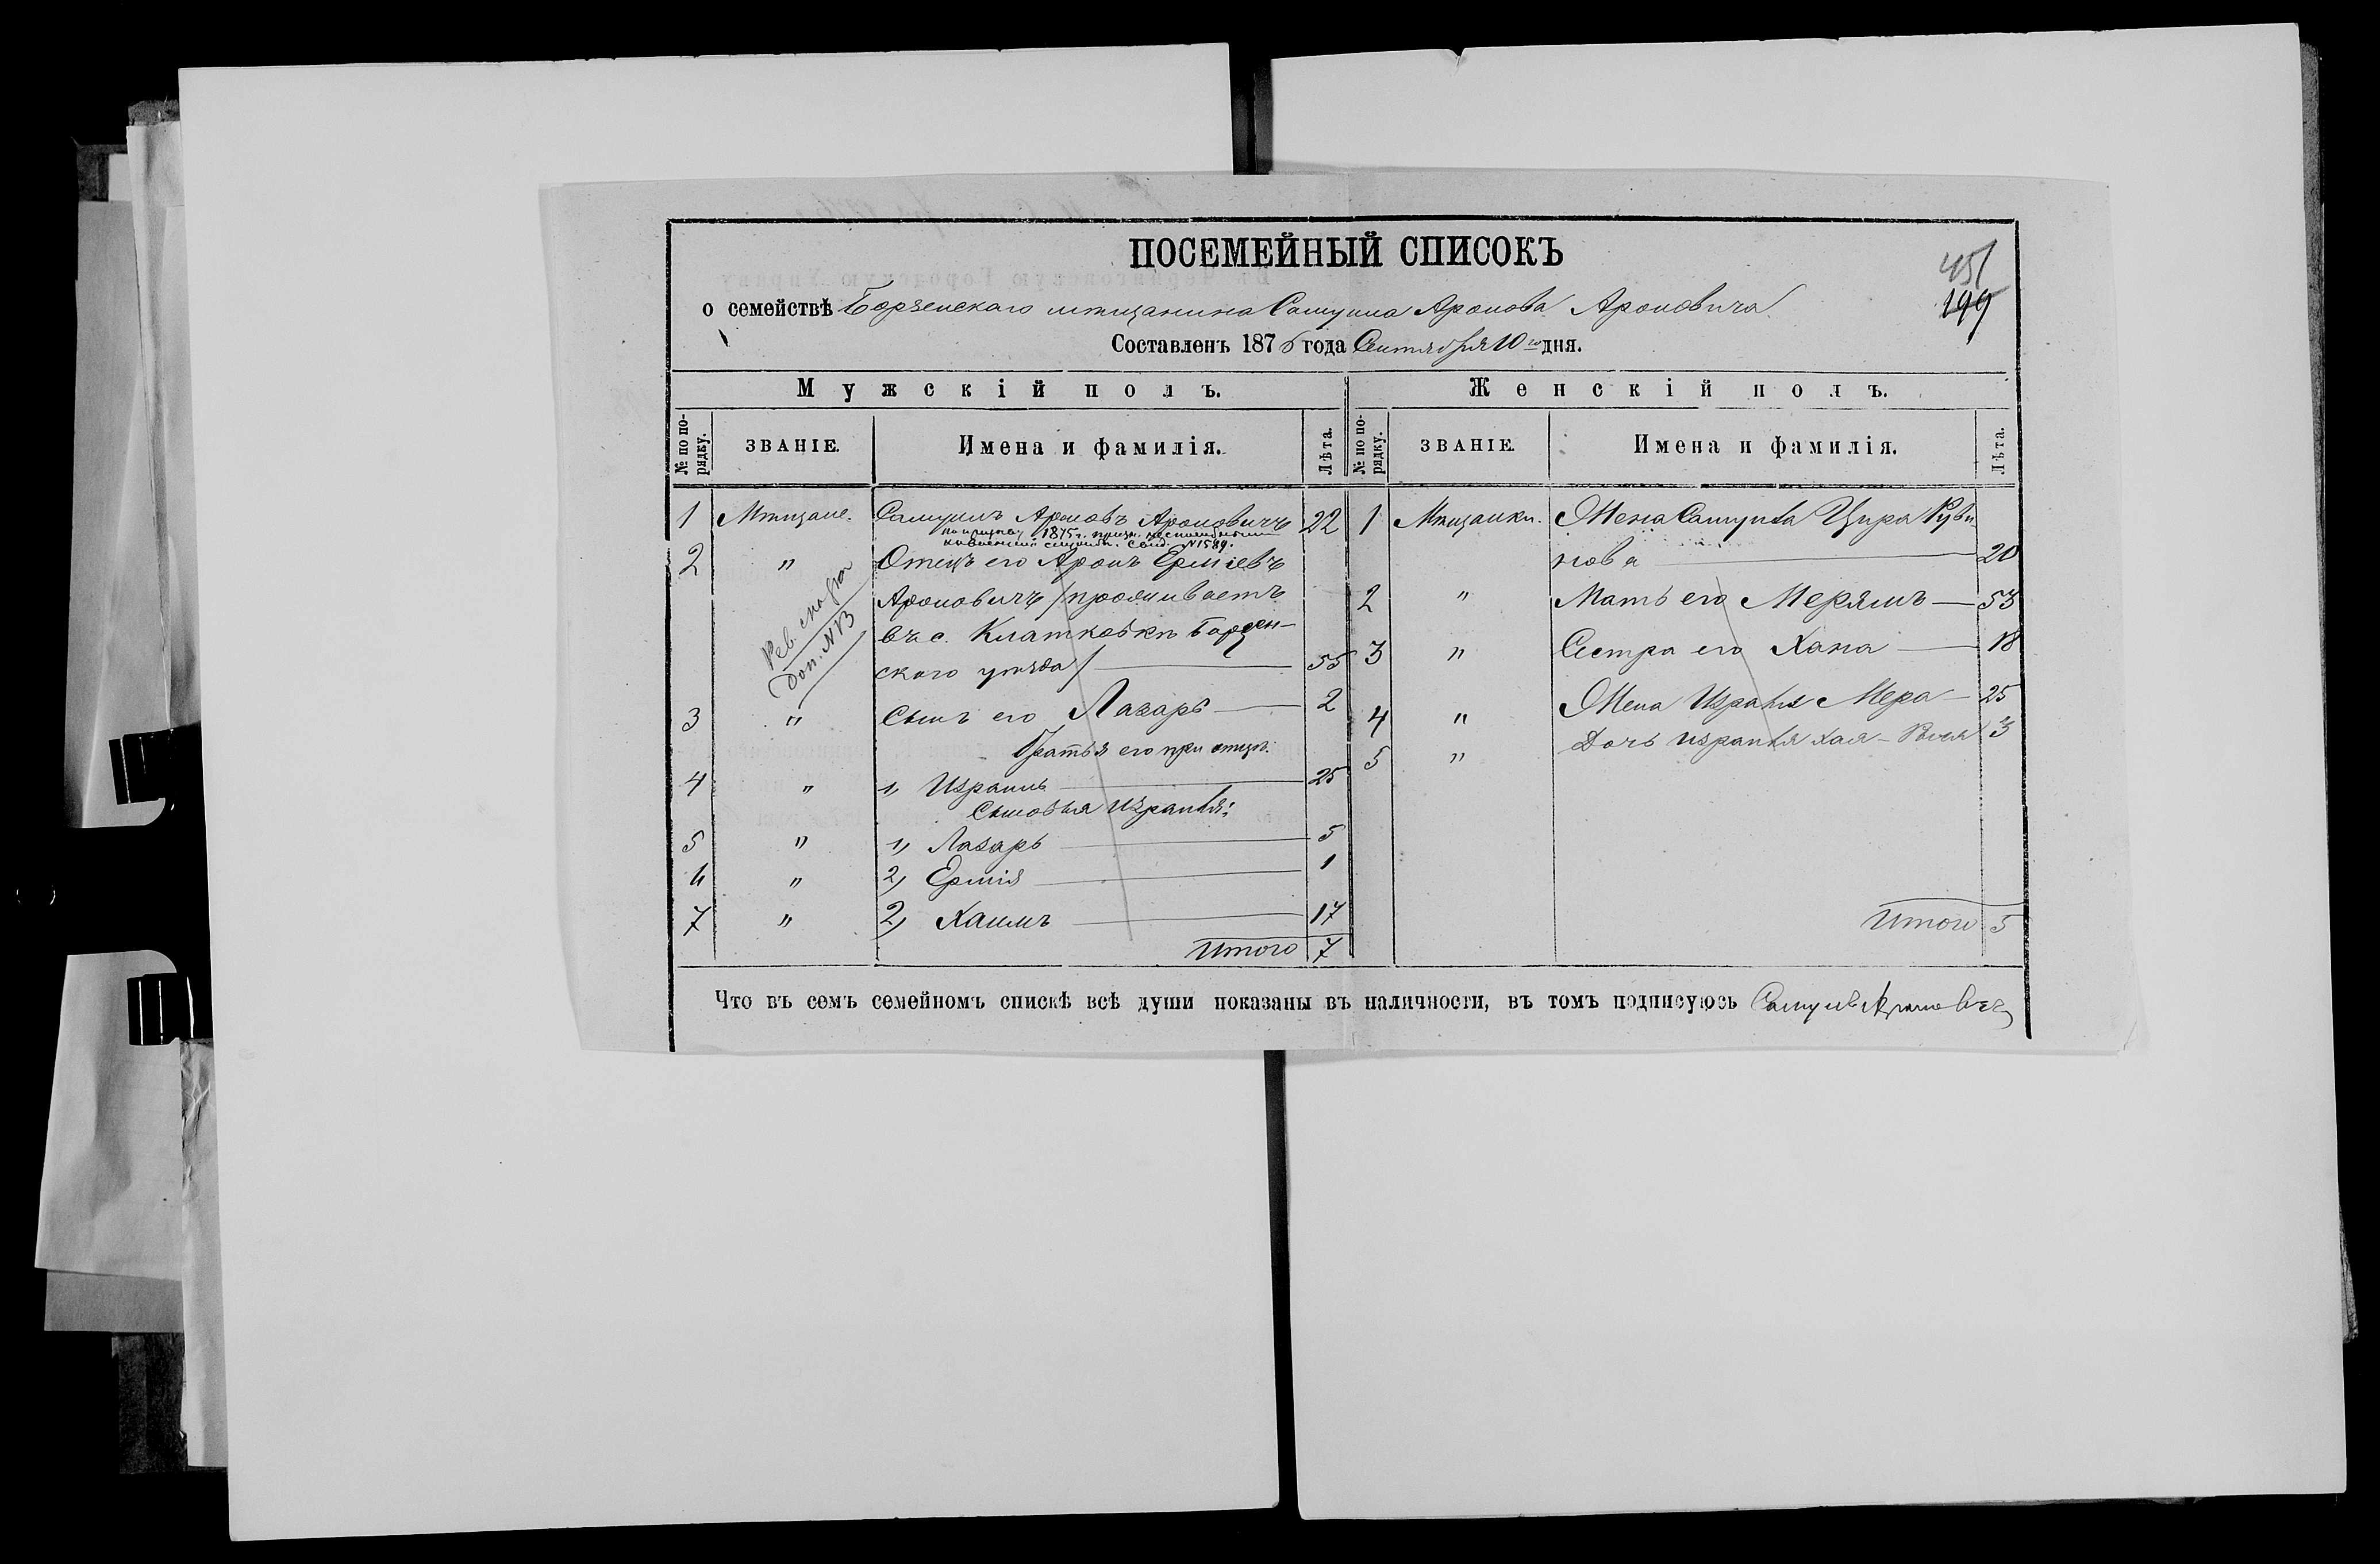 ПОСЕМЕЙНЫЙ СПИСОКЪ
451
199
о семействѣ Борзенскаго мѣщанина Самуила Аронова Ароновича
Составленъ 1876 года Сентября 10го дня.
Мужскій полъ.
№ по порядку.
ЗВАНІЕ.
Имена и фамилія.
Лѣта.
1 Мѣщане. Самуилъ Ароновъ Ароновичъ 22
1875 г. призн. неспособнымъ
Свид. №1589.
2 " Отецъ его Аронъ Ерміевъ
Ароновичъ /проживаетъ
въ с. Борзен-
ского уѣзда/ 55
Рев. сказка
Доп. №13
3 " Сынъ его Лазарь 2
Братья его при отцѣ:
4 " 1, Израиль 25
Сыновья Израиля:
5 " 1, Лазарь 5
6 " 2, Ермія 1
7 " 2, Хаимъ 17
Итого 7
Женскій полъ.
№ по порядку.
ЗВАНІЕ.
Имена и фамилія.
Лѣта.
1 Мѣщанки. Жена Самуила Цира Руви-
нова 20
2 " Мать его Мерямъ 53
3 " Сестра его Хана 18
4 " Жена Израиля Мера 25
5 " Дочь Израиля Хая- 3
Итого 5
Что въ семъ семейномъ спискѣ всѣ души показаны въ наличности, въ томъ подписуюсь Самуилъ Ароновичъ